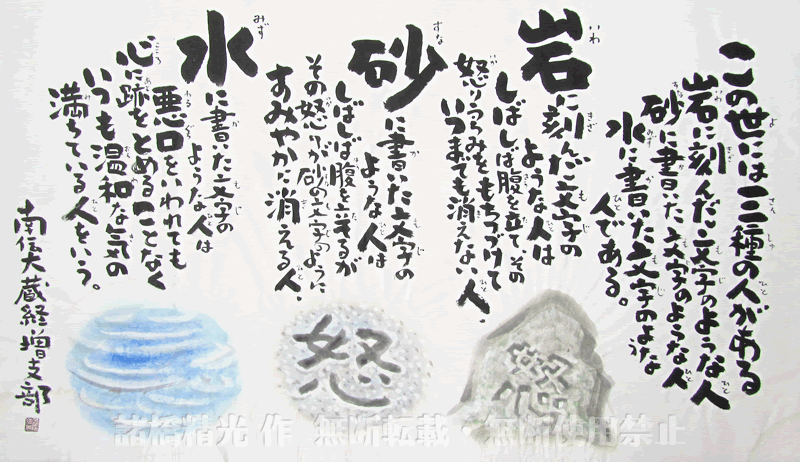 この世には三種の人がある
岩に刻んだ文字のような人
砂に書いた文字のような人
水に書いた文字のような
人である。
岩に刻んだ文字の
ような人は
しばしば腹を立てその
怒りうらみをもちつづけて
いつまでも消えない人.
砂に書いた文字の
ような人は
しばしば腹を立るが
その怒りが砂の文字のように
すみやかに消える人.
水に書いた文字の
ような人は
悪口をいわれても
心に跡をとめることなく
いつも温和な気の
満ちている人をいう。
南伝大蔵経増支部
怒
怒
諸橋精光 作 無断転載・無断使用禁止